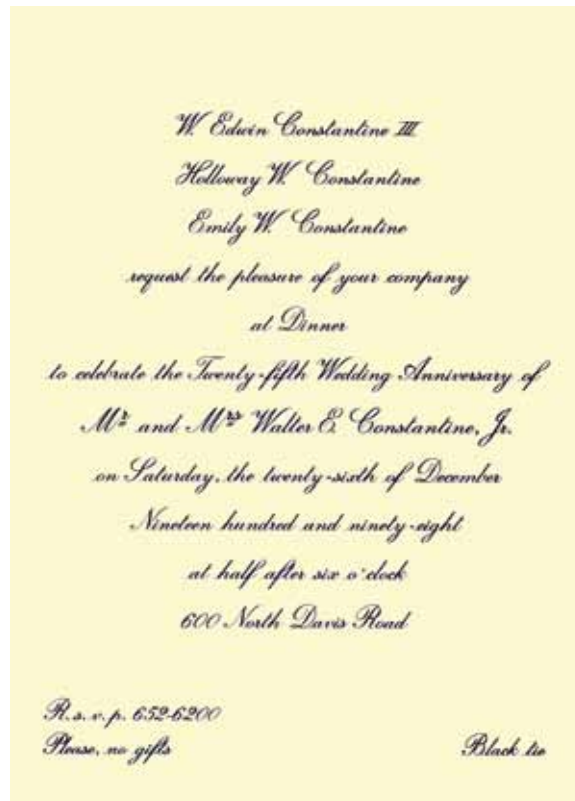 W. Edwin Constantine III
Holloway W. Constantine
Emily W. Constantine
request the pleasure of your company
at Dinner
to celebrate the Twenty-fifth Wedding Anniversary of
Mr and Mrs Walter E. Constantine, Jr.
on Saturday, the twenty-sixth of December
Nineteen hundred and ninety-eight
at half after six o'clock
600 North Davis Road
R.s.v.p. 652-6200
Please, no gifts
Black tie